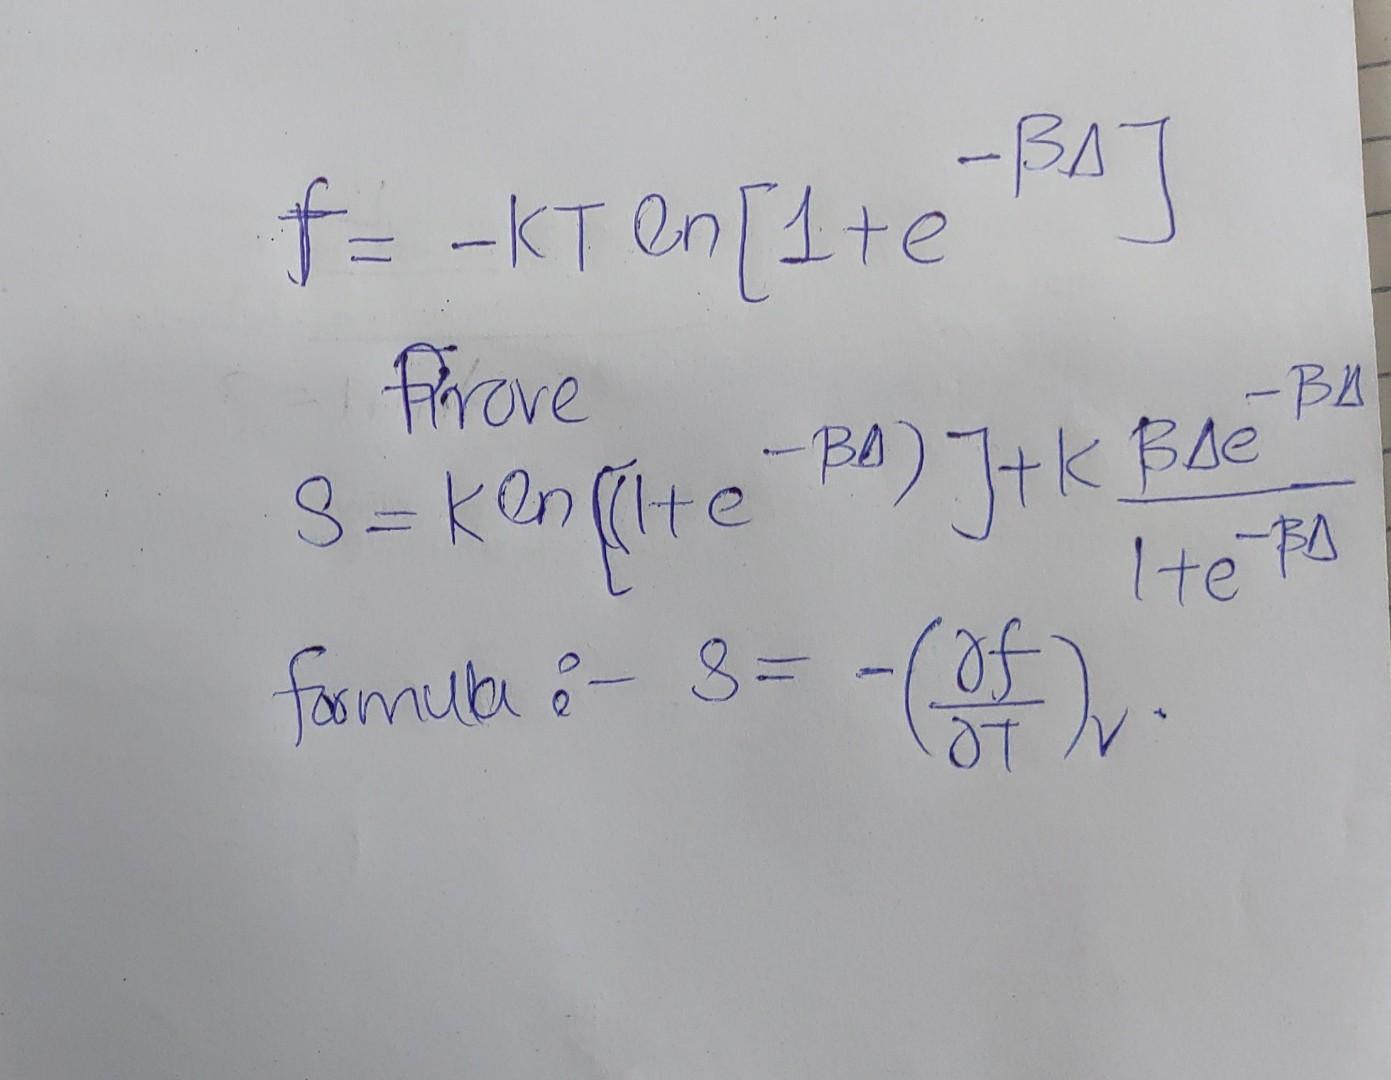 f = -KT ln[1+e^{-βΔ}]
Prove
S = K ln[(1+e^{-βΔ})] + K \frac{βΔe^{-βΔ}}{1+e^{-βΔ}}
formula :- S = -(\frac{∂f}{∂T})_V.